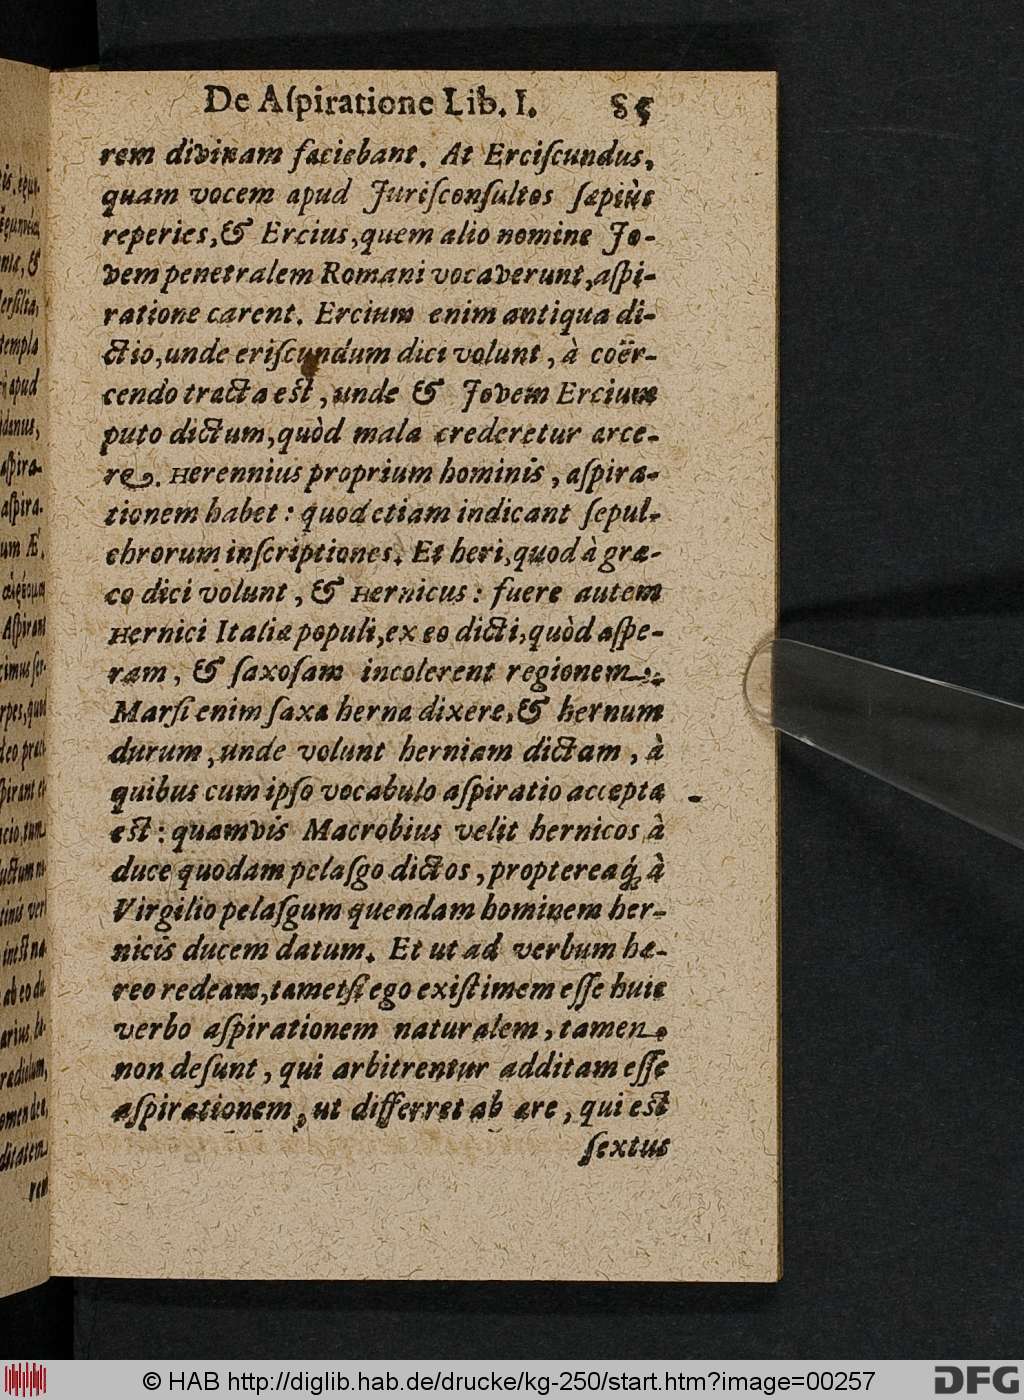 De Aſpiratione Lib. I. 85
rem divinam faciebant. At Erciſcundus,
quam vocem apud Juriſconſultos ſæpiùs
reperies, & Ercius, quem alio nomine Jo-
vem penetralem Romani vocaverunt, aſpi-
ratione carent. Ercium enim antiqua di-
ctio, unde eriſcundum dici volunt, à coër-
cendo tracta est, unde & Jovem Ercium
puto dictum, quòd mala crederetur arce-
re. Herennius proprium hominis, aſpira-
tionem habet: quod etiam indicant ſepul-
chrorum inſcriptiones. Et heri, quod à græ-
co dici volunt, & Hernicus: fuere autem
Hernici Italiæ populi, ex eo dicti, quòd aſpe-
ram, & ſaxoſam incolerent regionem:
Marſi enim ſaxa herna dixere, & hernum
durum, unde volunt herniam dictam, à
quibus cum ipſo vocabulo aſpiratio accepta
est: quamvis Macrobius velit hernicos à
duce quodam pelaſgo dictos, proptereaq́; à
Virgilio pelaſgum quendam hominem her-
nicis ducem datum. Et ut ad verbum hæ-
reo redeam, tametſi ego exiſtimem eſſe huic
verbo aſpirationem naturalem, tamen
non deſunt, qui arbitrentur additam eſſe
aſpirationem, ut differret ab ære, qui est
ſextus
is, eque
niæ, &
Herſilia,
templa
apud
danus,
aſpira-
aſpira-
um Æ.
Aſpirant
cimus ſer-
rpes, quod
deo præci
ſpirant et
cio, tum
ductum ni
tinis ver
inest na
ab eo di
arius, hæ-
redium,
omen dee,
ditatem
rem
© HAB http://diglib.hab.de/drucke/kg-250/start.htm?image=00257
DFG